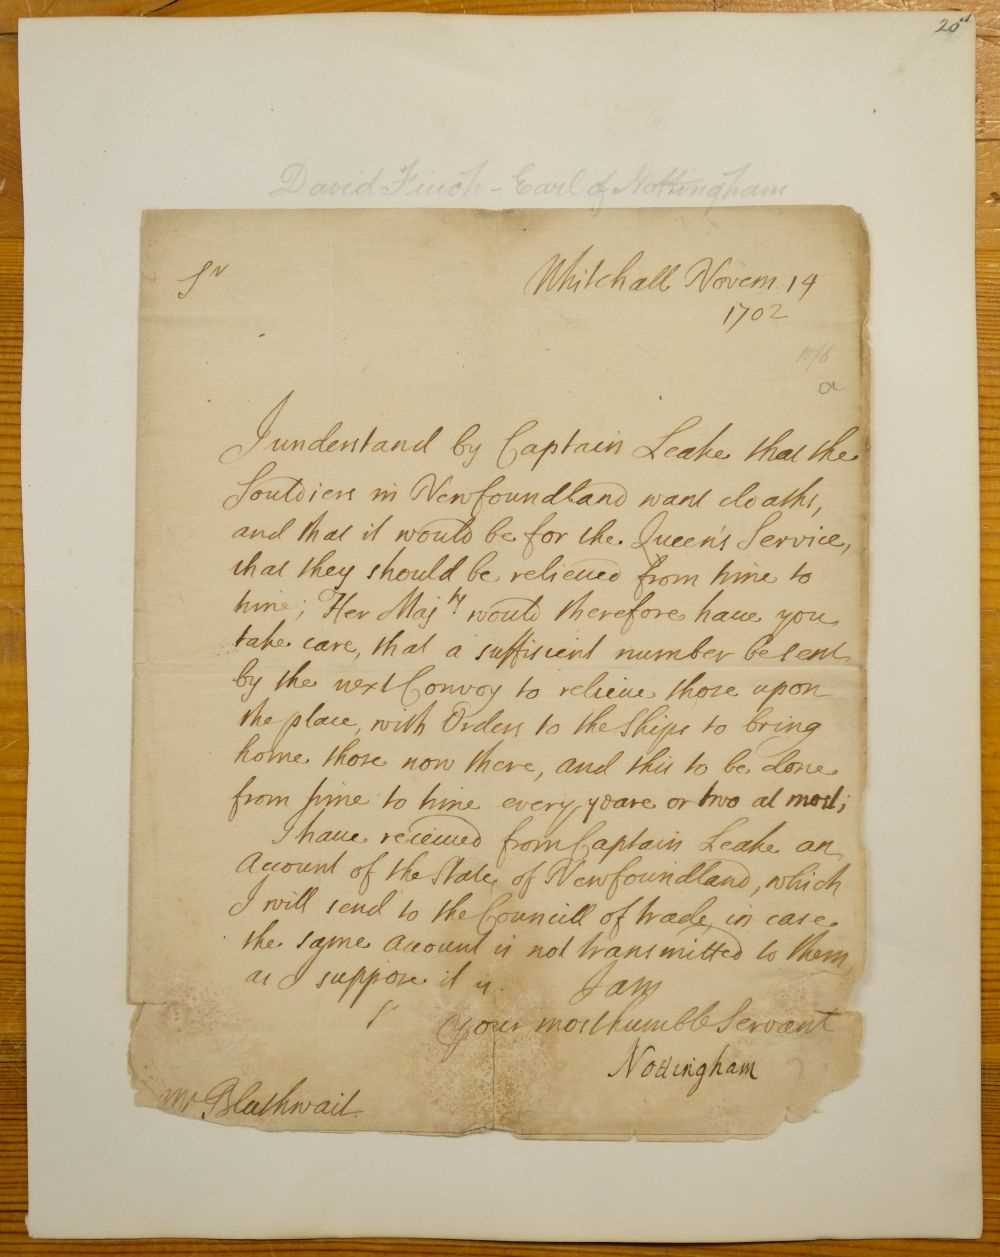 20
David Finch - Earl of Nottingham
Sr
Whitehall Novem. 14
1702
a
I understand by Captain Leake that the
Souldiers in Newfoundland want cloaths,
and that it would be for the Queen's Service,
that they should be relieued from time to
time; Her Majty would therefore haue you
take care, that a suffisient number be sent
by the next Convoy to relieue those upon
the place, with Orders to the Ships to bring
home those now there, and this to be done
from time to time every yeare or two at most;
I haue receiued from Captain Leake an
Account of the State of Newfoundland, which
I will send to the Councill of trade, in case
the same account is not transmitted to them
as I suppose it is. I am
Sr
your most humble Servant
Nottingham
Mr Blathwait